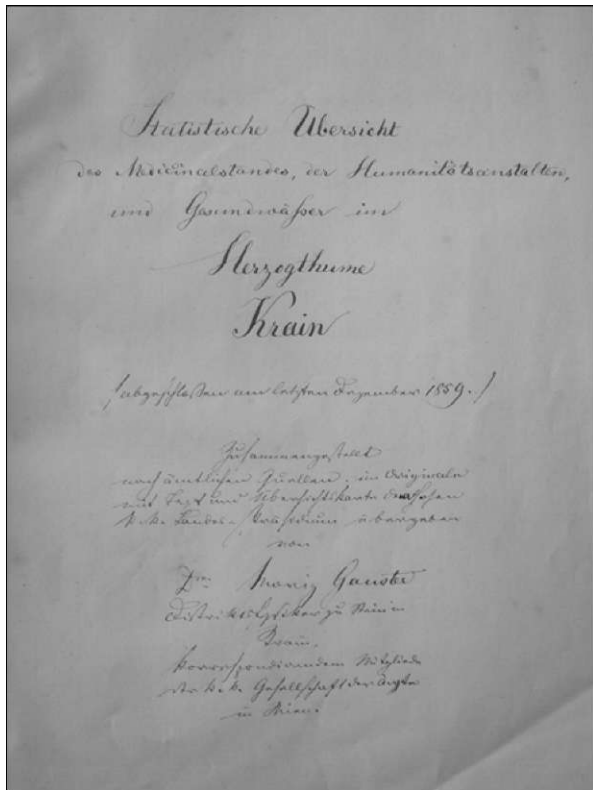 Statistische Übersicht
des Medicinalstandes, der Humanitätsanstalten,
und Gesundwäßer im
Herzogthume
Krain
/abgeschloßen am letzten Dezember 1859./
Zusammengestellt
nach ämtlichen Quellen, im Originale
mit Text und Übersichtskarte dem hohen
k. k. Landes-Präsidium übergeben
von
Dr. Moriz Gauster
Distriktsphysiker zu Stein in
Krain,
korrespondirendem Mitgliede
der k. k. Gesellschaft der Ärzte
in Wien.